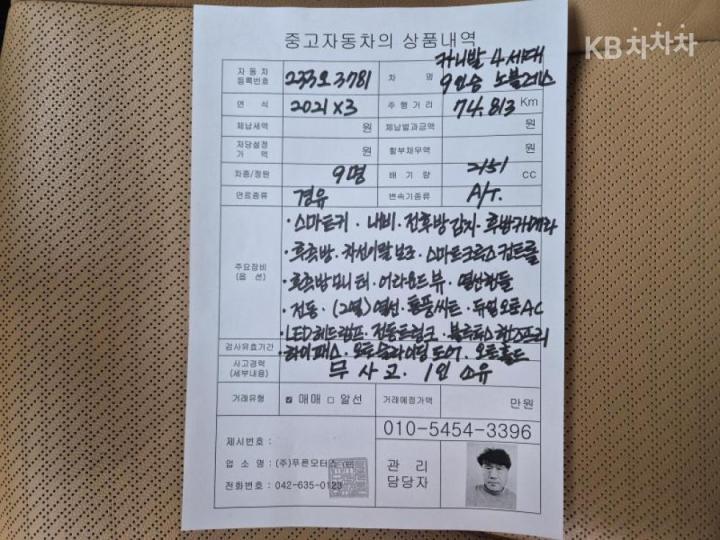 KB차차차
중고자동차의 상품내역
자동차 등록번호 233오3781 차 명 카니발 4세대 9인승 노블레스
연 식 2021X3 주행거리 74.813 Km
체납세액 원 체납범과금액 원
저당설정 가 액 원 할부채무액 원
차종/정원 9명 배 기 량 2151 CC
연료종류 경유 변속기종류 A/T.
주요장비 (옵 션)
·스마트키·내비·전후방감지·후방카메라
·후측방·차선이탈보조·스마트크루즈컨트롤
·후측방모니터·어라운드뷰·열선핸들
·전동·(2열)열선·통풍씨트·듀얼오토AC
·LED헤드램프·전동트렁크·블루투스핸즈프리
검사유효기간 ·하이패스·오토슬라이딩도어·오토홀드
사고경력 (세부내용) 무사고. 1인소유
거래유형 ☑ 매매 □ 알선 거래예정가액 만원
제시번호 : 010-5454-3396
업 소 명 : (주)푸른모터스 관 리
전화번호 : 042-635-0123 담당자